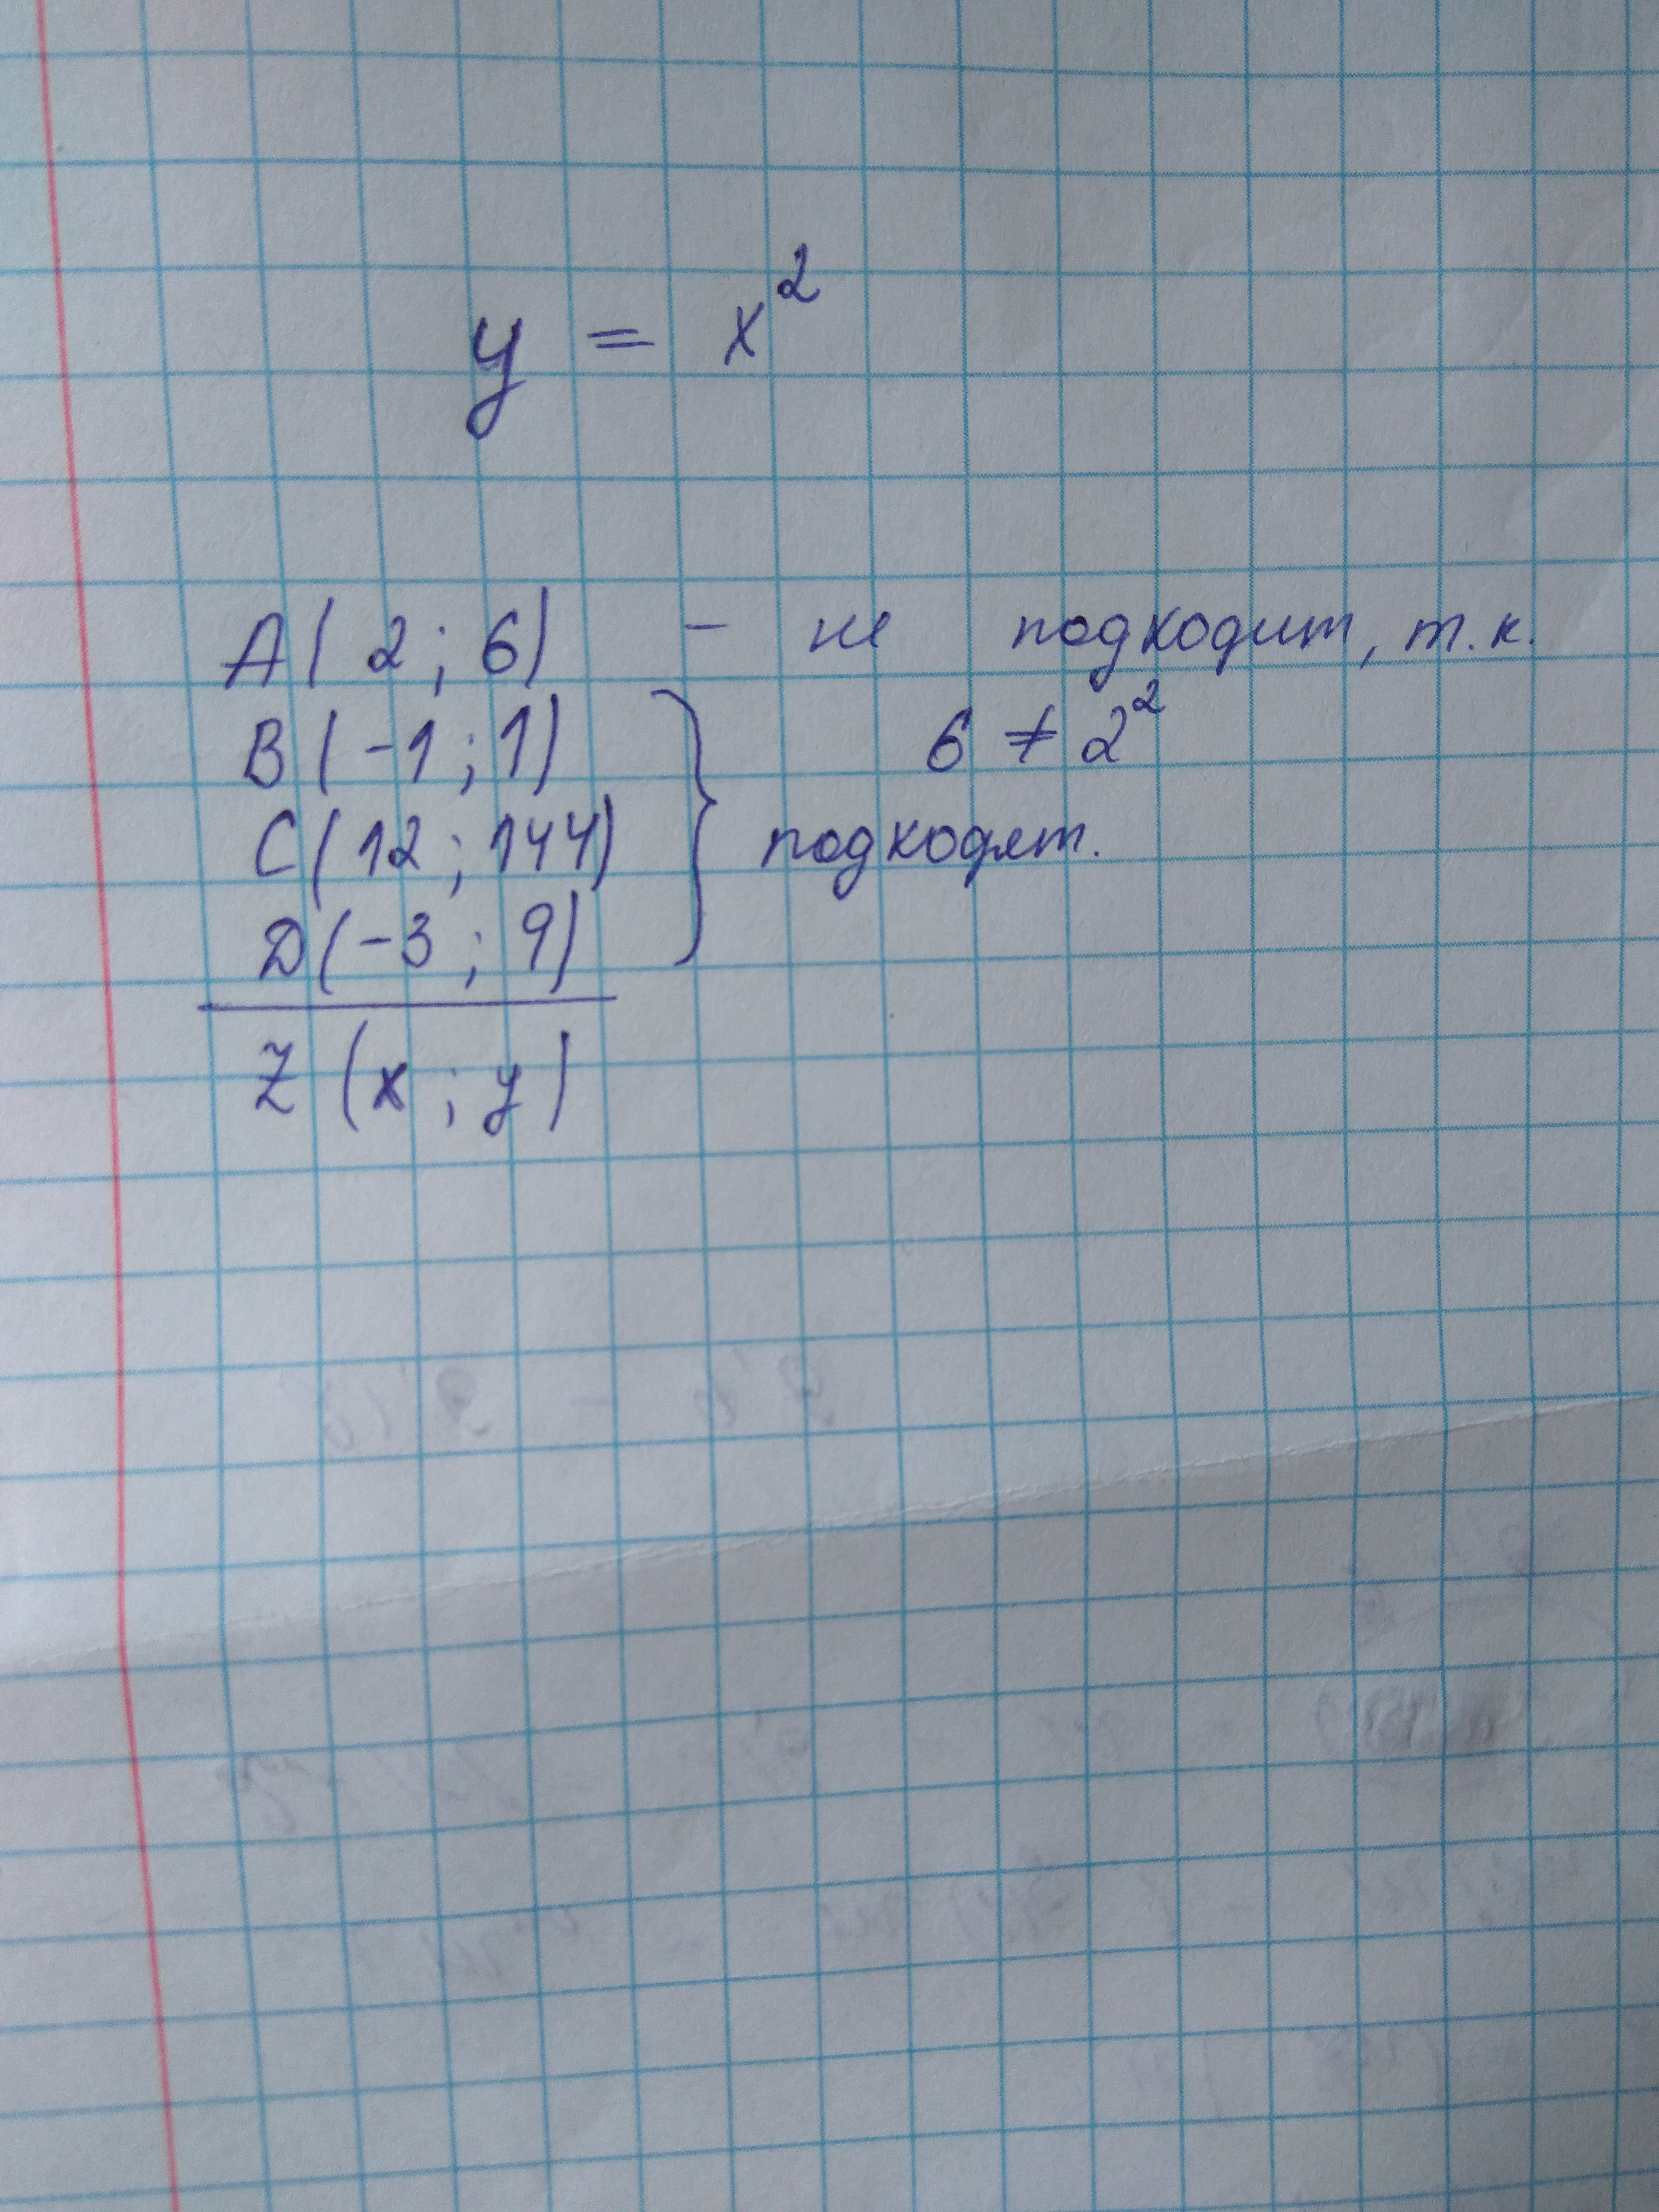 y = x²
A(2; 6) - не подходит, т.к.
6 ≠ 2²
B(-1; 1)
C(12; 144)
D(-3; 9)
подходят.
Z (x; y)